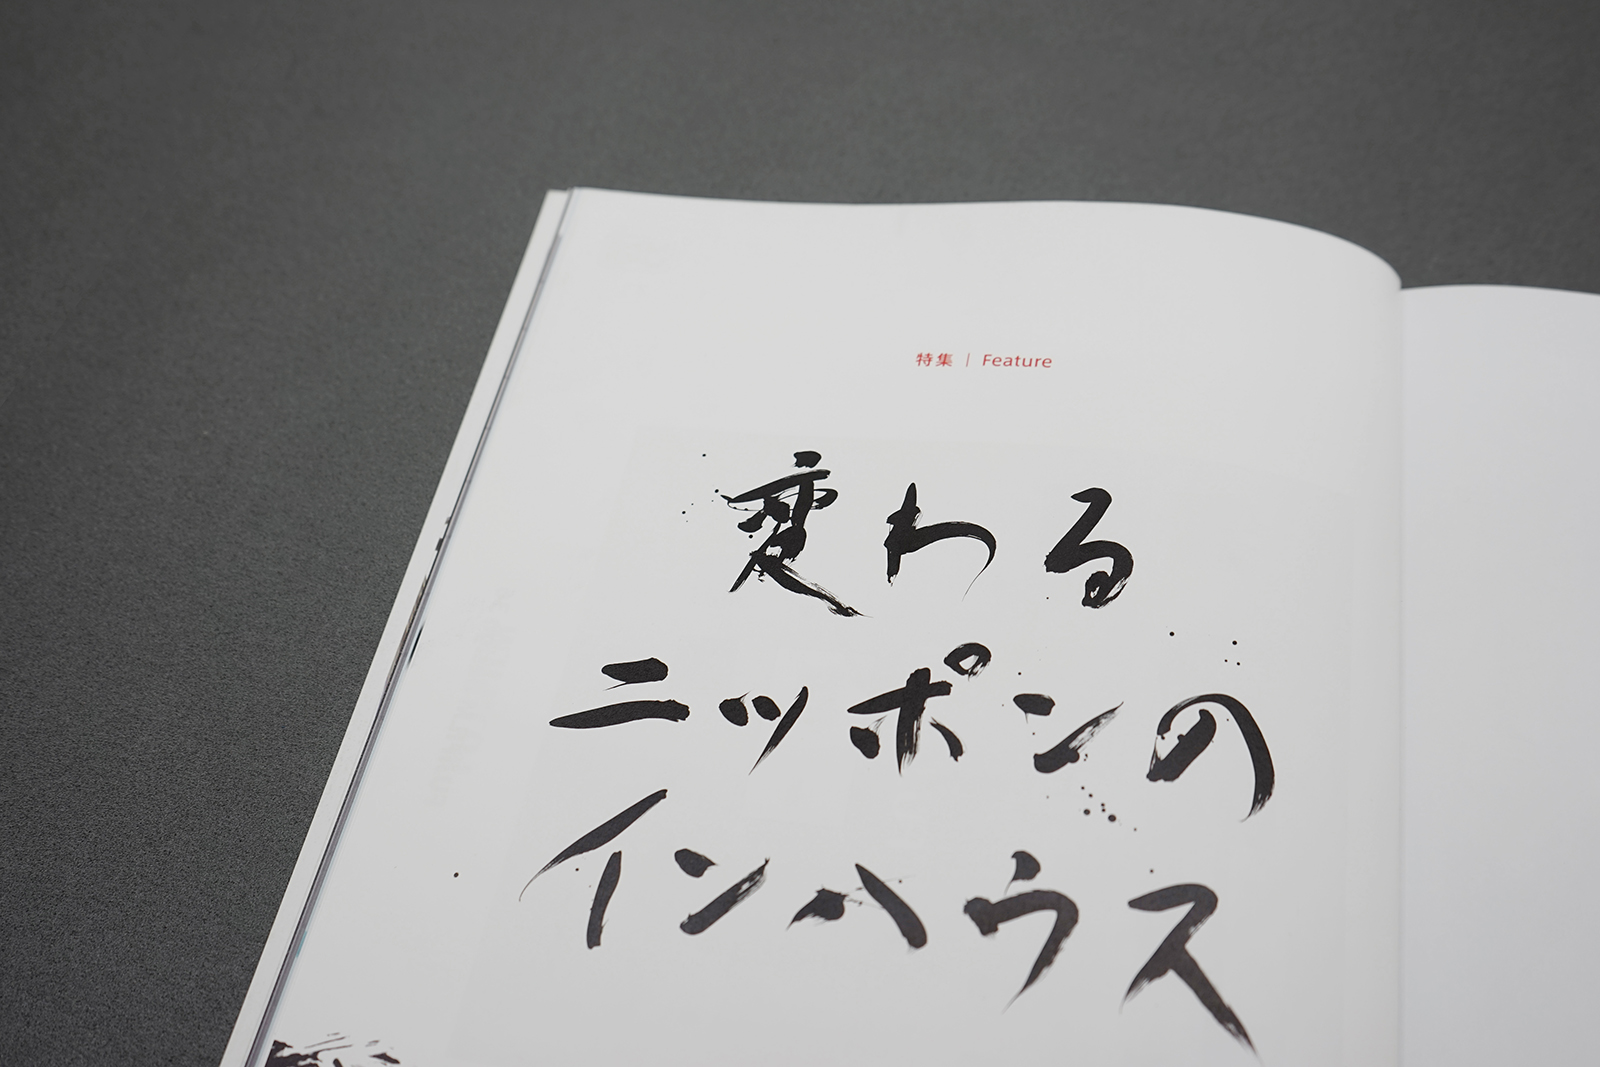 特集 | Feature
変わる
ニッポンの
インハウス